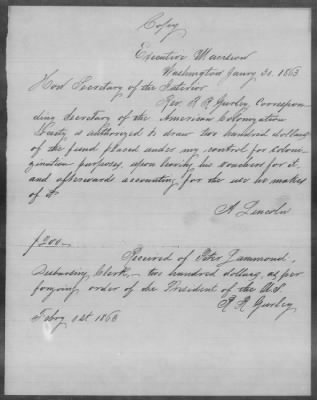 Copy
Executive Mansion
Washington Jany 30. 1863
Hon Secretary of the Interior
Rev. R R Gurley, Correspon-
ding Secretary of the American Colonization
Society is authorized to draw two hundred dollars
of the fund placed under my control for colo
nization purposes, upon leaving his vouchers for it,
and afterwards accounting for the use he makes
of it
A Lincoln
$200—
Received of Peter Lammond,
Disbursing Clerk, two hundred dollars, as per
forgoing order of the President of the U.S.
R R Gurley
Feby 1st 1863